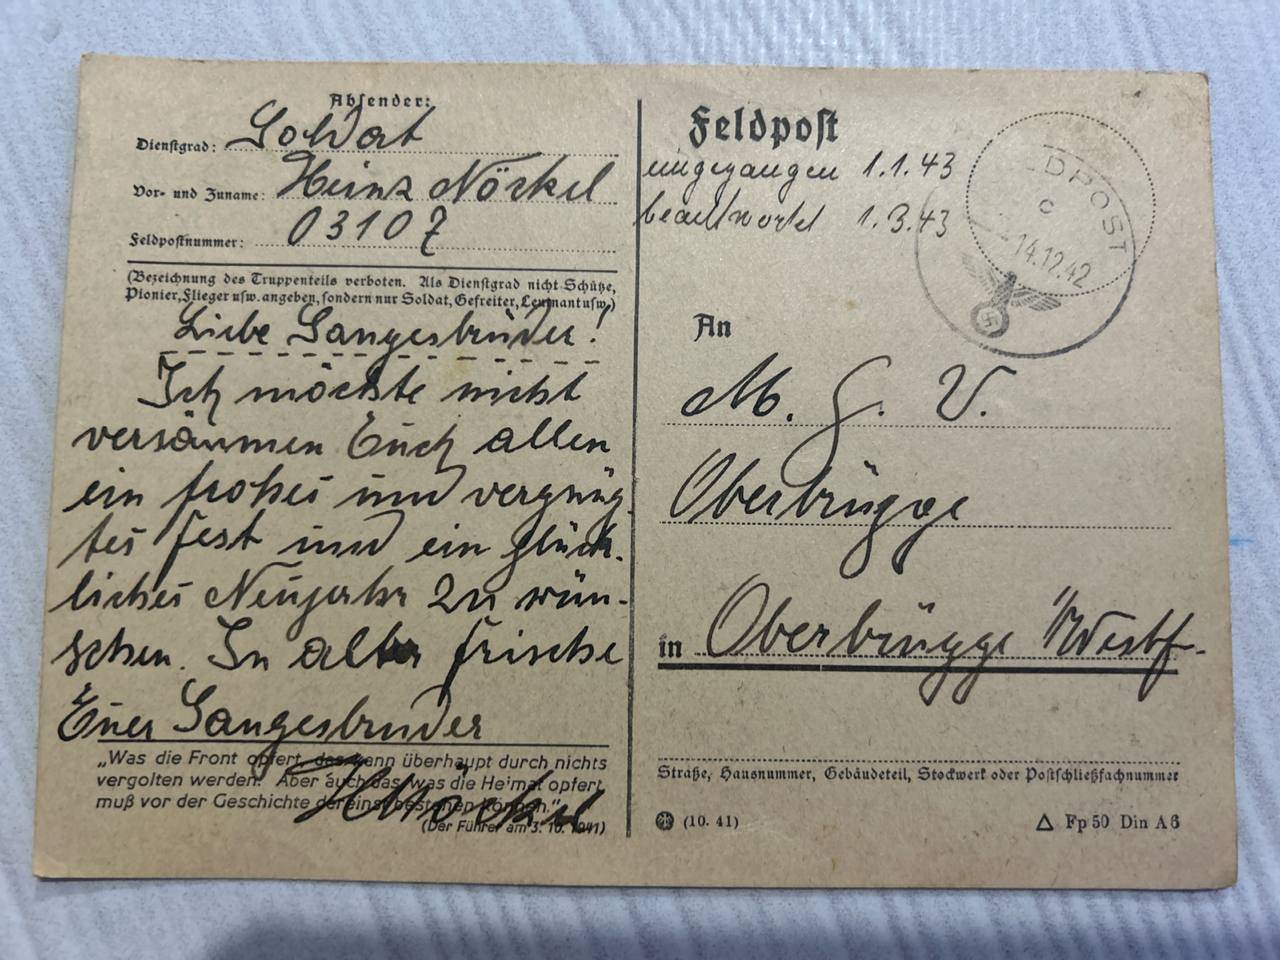 Absender:
Dienstgrad: Soldat
Vor- und Zuname: Heinz Nöckel
Feldpostnummer: 03107
(Bezeichnung des Truppenteils verboten. Als Dienstgrad nicht Schütze,
Pionier, Flieger usw. angeben, sondern nur Soldat, Gefreiter, Leutnant usw.)
Liebe Sangesbrüder!
Ich möchte nicht
versäumen Euch allen
ein frohes und vergnüg-
tes Fest und ein glück-
liches Neujahr zu wün-
schen. In alter Frische
Euer Sangesbruder
HNöckel
„Was die Front opfert, das kann überhaupt durch nichts
vergolten werden. Aber auch das, was die Heimat opfert
muß vor der Geschichte dereinst bestehen können.“
(Der Führer am 3. 10. 1941)
Feldpost
eingegangen 1.1.43
beantwortet 1.3.43
LDPOST
c
14.12.42
An
M. G. V.
Oberbrügge
in Oberbrügge i/Westf.
Straße, Hausnummer, Gebäudeteil, Stockwerk oder Postschließfachnummer
(10. 41)
△ Fp 50 Din A 6